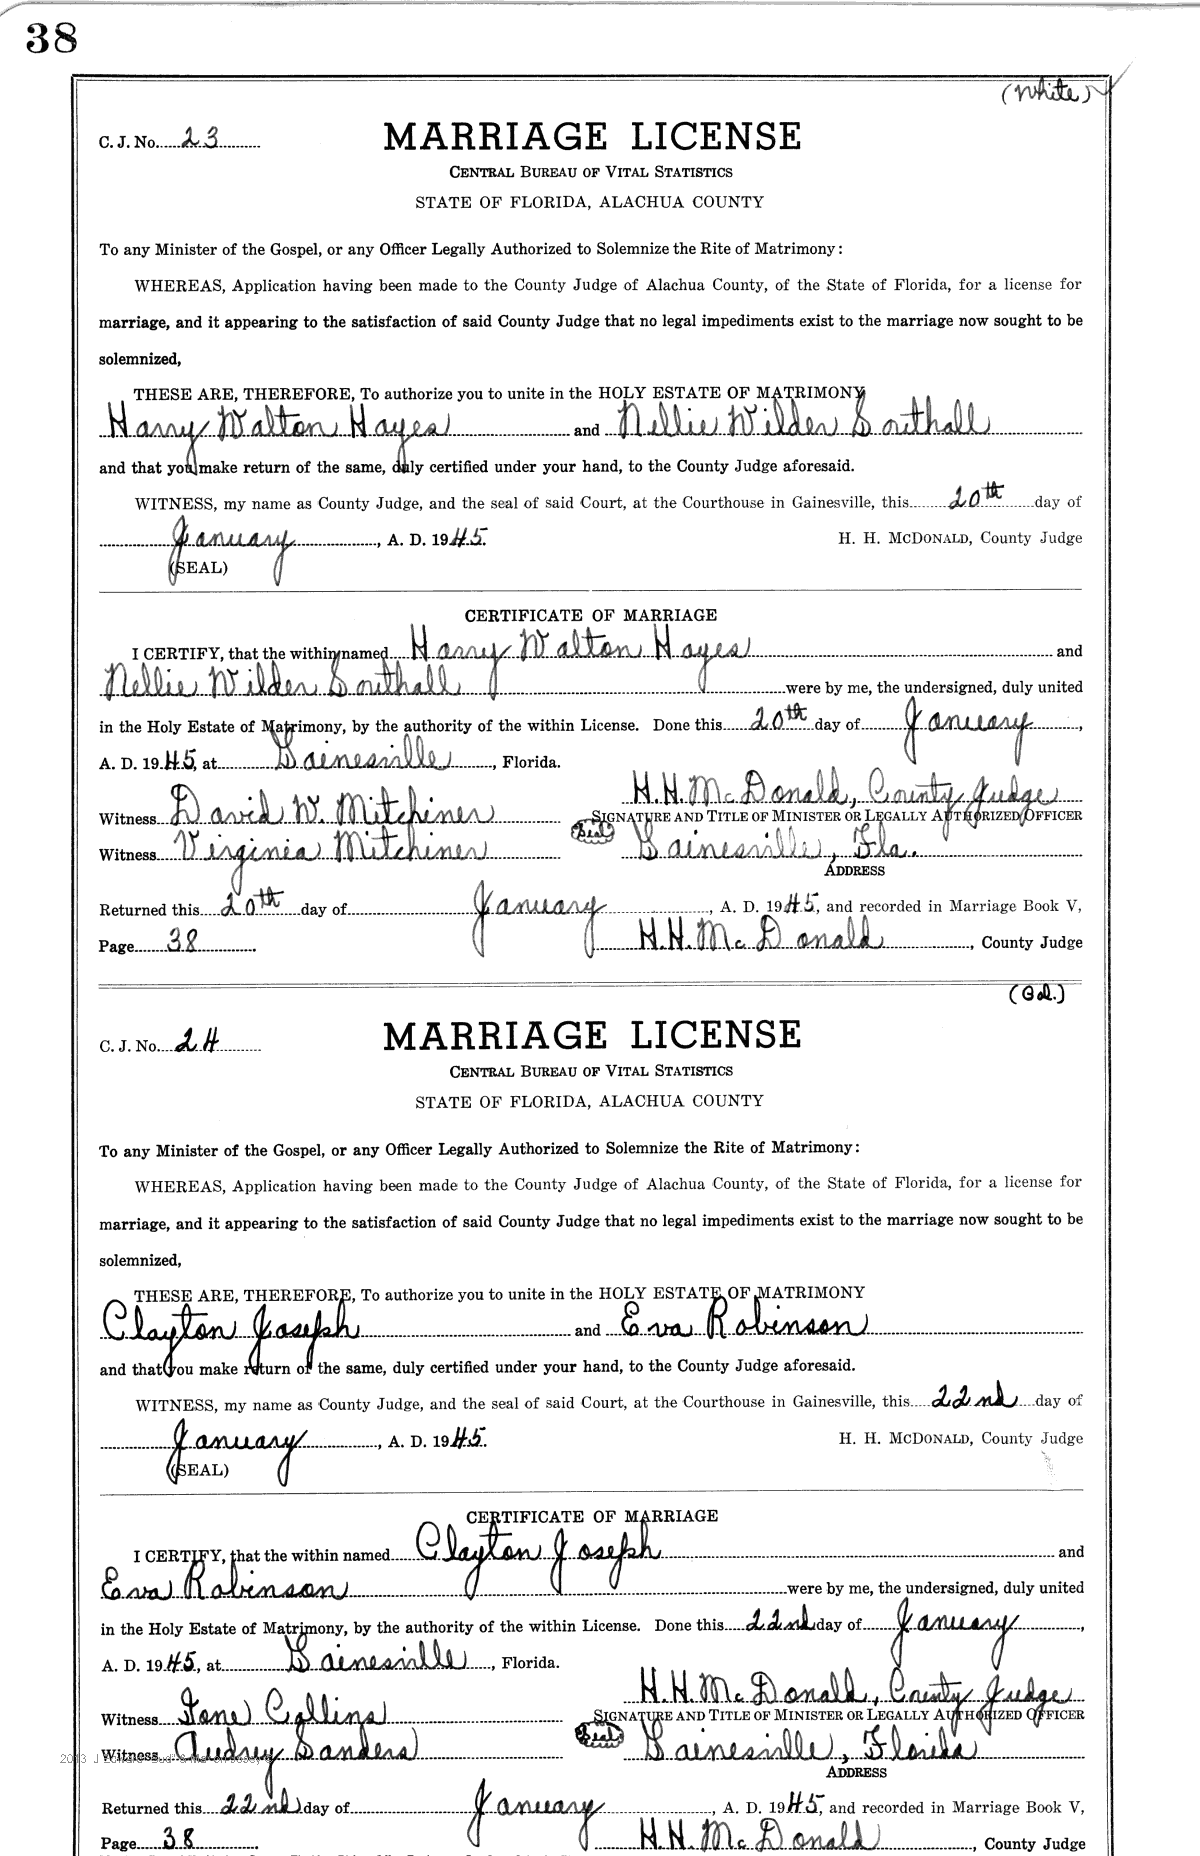 38
(White)
C. J. No. 23
MARRIAGE LICENSE
CENTRAL BUREAU OF VITAL STATISTICS
STATE OF FLORIDA, ALACHUA COUNTY
To any Minister of the Gospel, or any Officer Legally Authorized to Solemnize the Rite of Matrimony:
WHEREAS, Application having been made to the County Judge of Alachua County, of the State of Florida, for a license for
marriage, and it appearing to the satisfaction of said County Judge that no legal impediments exist to the marriage now sought to be
solemnized,
THESE ARE, THEREFORE, To authorize you to unite in the HOLY ESTATE OF MATRIMONY
Harry Walton Hayes and Nellie Wilder Southall
and that you make return of the same, duly certified under your hand, to the County Judge aforesaid.
WITNESS, my name as County Judge, and the seal of said Court, at the Courthouse in Gainesville, this 20th day of
January, A. D. 1945. H. H. MCDONALD, County Judge
(SEAL)
CERTIFICATE OF MARRIAGE
I CERTIFY, that the within named Harry Walton Hayes and
Nellie Wilder Southall were by me, the undersigned, duly united
in the Holy Estate of Matrimony, by the authority of the within License. Done this 20th day of January,
A. D. 1945, at Gainesville, Florida.
H.H. McDonald, County Judge
Witness David W. Mitchiner SIGNATURE AND TITLE OF MINISTER OR LEGALLY AUTHORIZED OFFICER
Witness Virginia Mitchiner Seal Gainesville, Fla.
ADDRESS
Returned this 20th day of January, A. D. 1945, and recorded in Marriage Book V,
Page 38 H.H. McDonald, County Judge
(Col.)
C. J. No. 24
MARRIAGE LICENSE
CENTRAL BUREAU OF VITAL STATISTICS
STATE OF FLORIDA, ALACHUA COUNTY
To any Minister of the Gospel, or any Officer Legally Authorized to Solemnize the Rite of Matrimony:
WHEREAS, Application having been made to the County Judge of Alachua County, of the State of Florida, for a license for
marriage, and it appearing to the satisfaction of said County Judge that no legal impediments exist to the marriage now sought to be
solemnized,
THESE ARE, THEREFORE, To authorize you to unite in the HOLY ESTATE OF MATRIMONY
Clayton Joseph and Eva Robinson
and that you make return of the same, duly certified under your hand, to the County Judge aforesaid.
WITNESS, my name as County Judge, and the seal of said Court, at the Courthouse in Gainesville, this 22nd day of
January, A. D. 1945. H. H. MCDONALD, County Judge
(SEAL)
CERTIFICATE OF MARRIAGE
I CERTIFY, that the within named Clayton Joseph and
Eva Robinson were by me, the undersigned, duly united
in the Holy Estate of Matrimony, by the authority of the within License. Done this 22nd day of January,
A. D. 1945, at Gainesville, Florida.
H.H. McDonald, County Judge
Witness Collins SIGNATURE AND TITLE OF MINISTER OR LEGALLY AUTHORIZED OFFICER
Witness Audrey Sanders Seal Gainesville, Florida
ADDRESS
Returned this 22nd day of January, A. D. 1945, and recorded in Marriage Book V,
Page 38 H.H. McDonald, County Judge